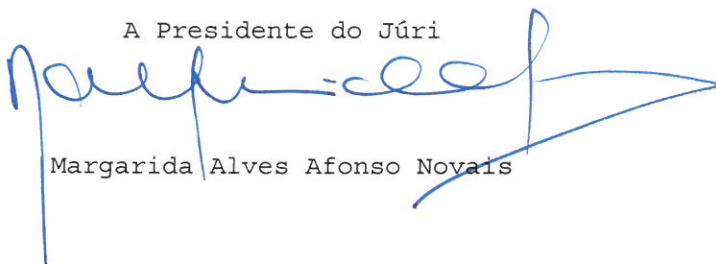 A Presidente do Júri
Margarida Alves Afonso Novais